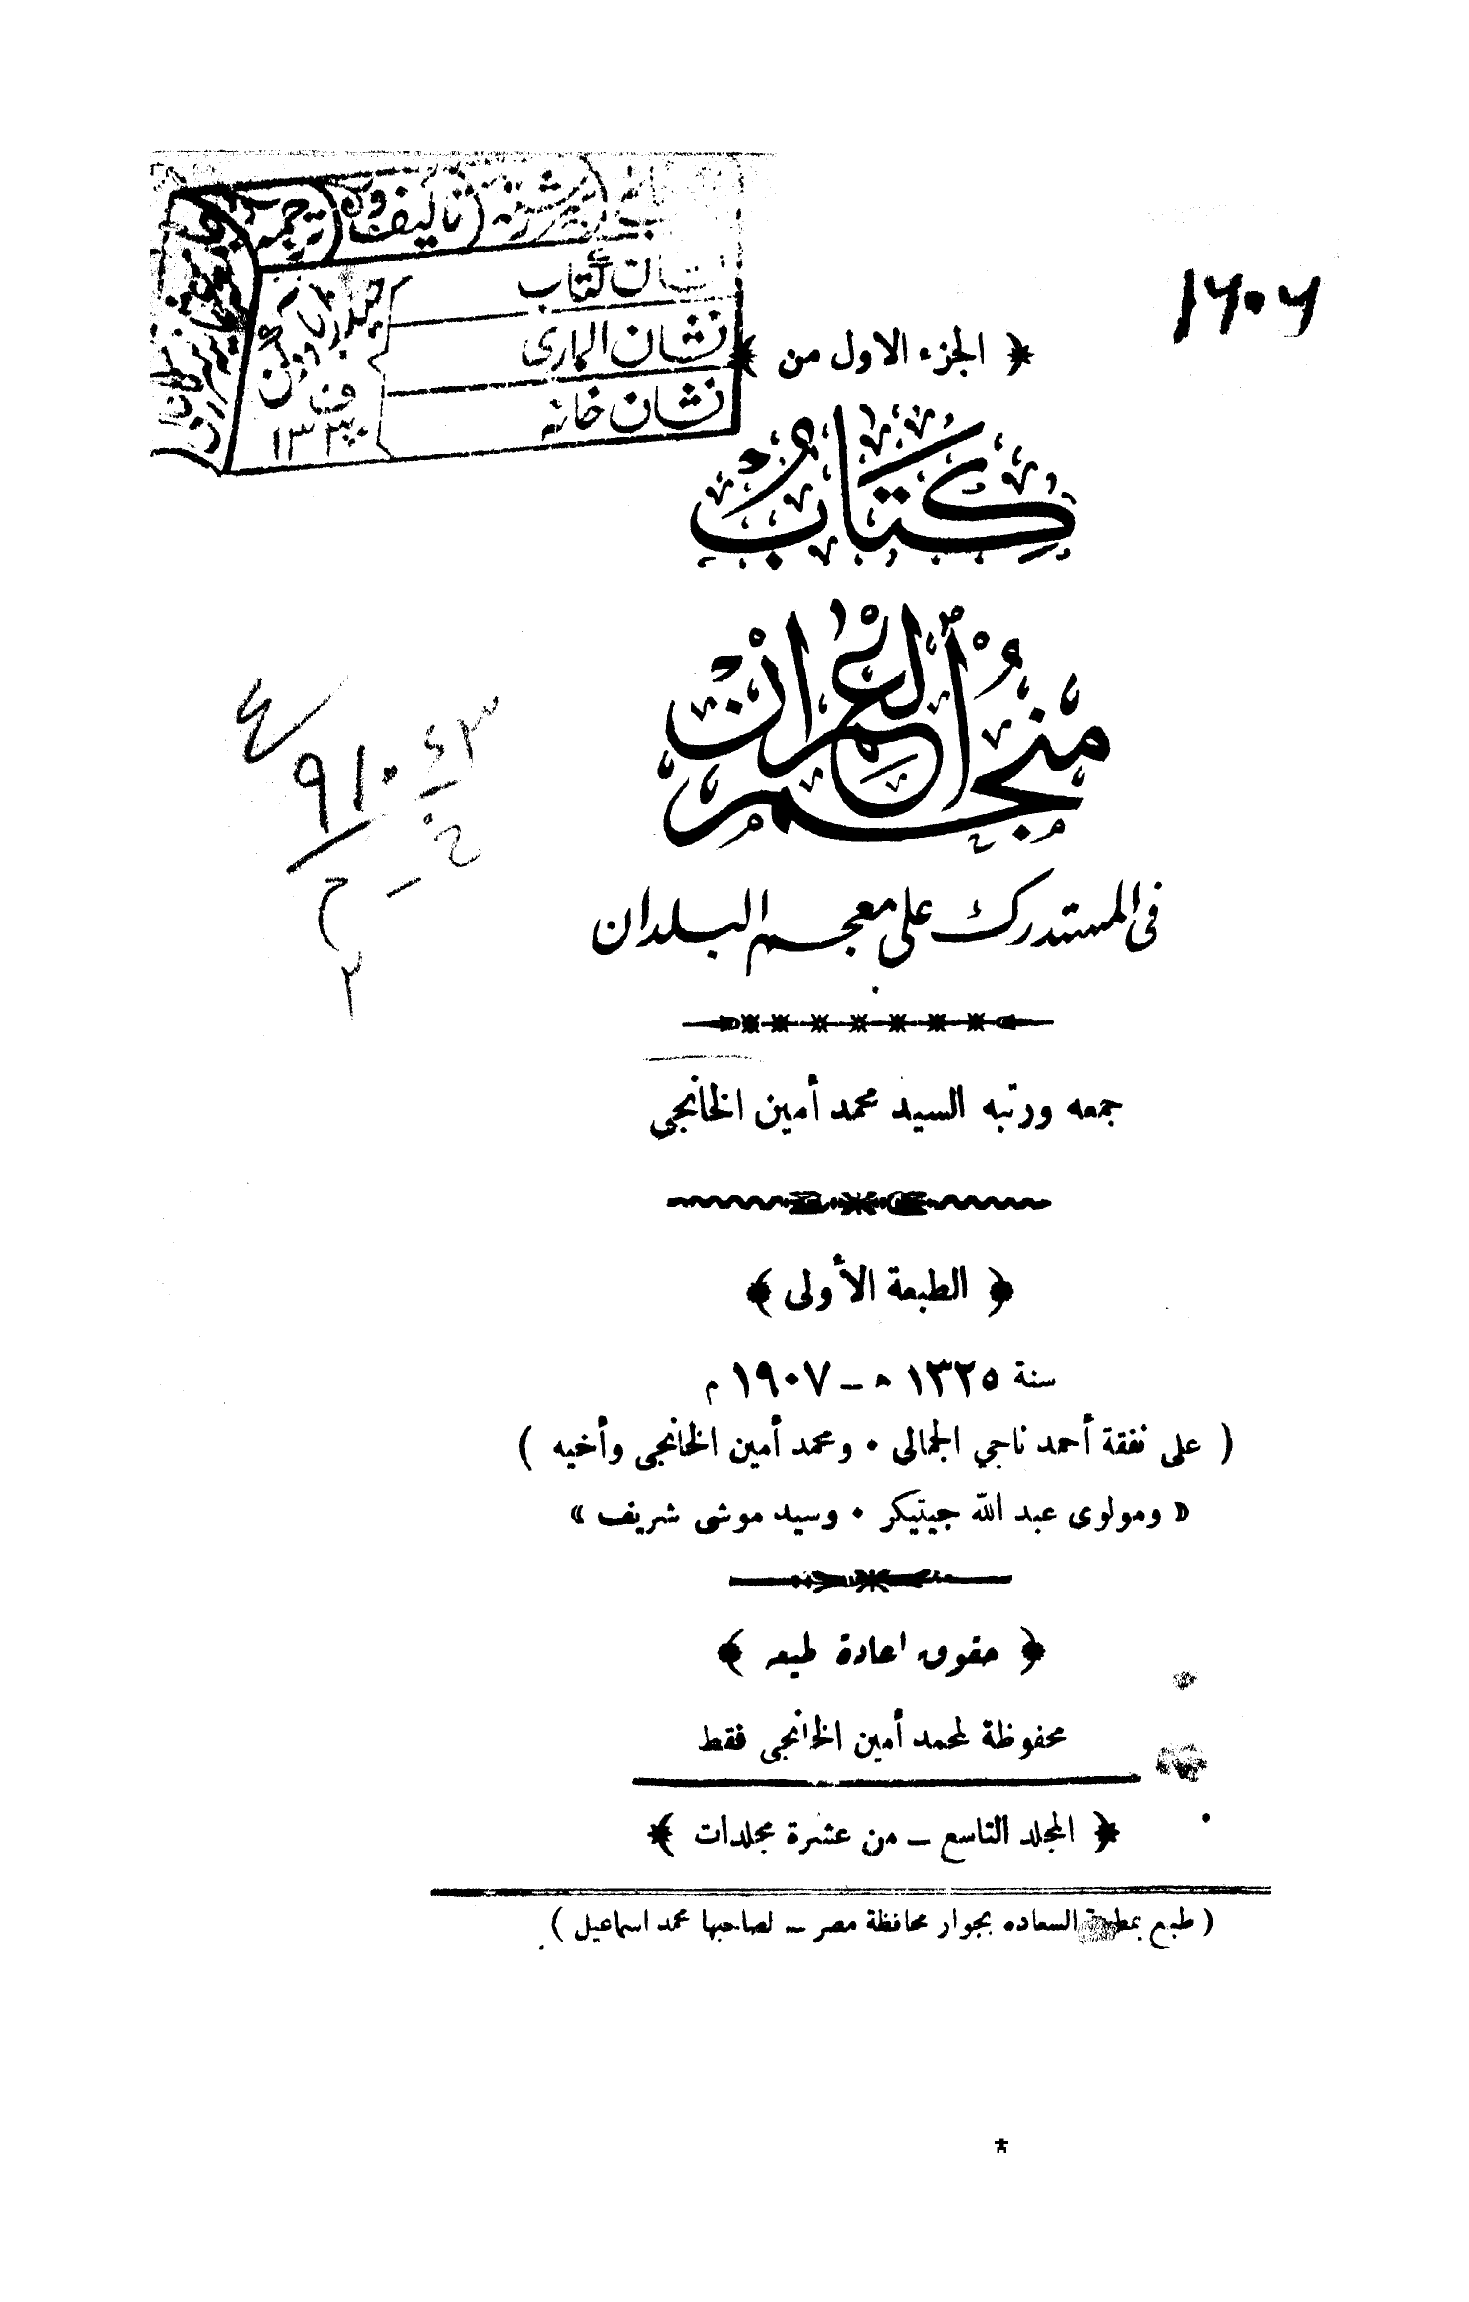 سررشتة (تاليف و) ترجمه
نشان كتاب
نشان الماری
نشان خانه
١٦٠٦
﴿ الجزء الاول من ﴾
كِتَابُ
مُنْجَمُ الْعُمْرَانْ
فى المستدرك على معجم البلدان
٩١٠
جمعه ورتبه السيد محمد أمين الخانجى
﴿ الطبعة الأولى ﴾
سنة ١٣٢٥ هـ ــ ١٩٠٧ م
( على نفقة أحمد ناجي الجمالى • ومحمد أمين الخانجى وأخيه )
« ومولوى عبد الله جيتيكر • وسيد موشى شريف »
﴿ حقوق اعادة طبعه ﴾
محفوظة لمحمد أمين الخانجى فقط
﴿ المجلد التاسع ــ من عشرة مجلدات ﴾
( طبع بمطبعة السعاده بجوار محافظة مصر ــ لصاحبها محمد اسماعيل )